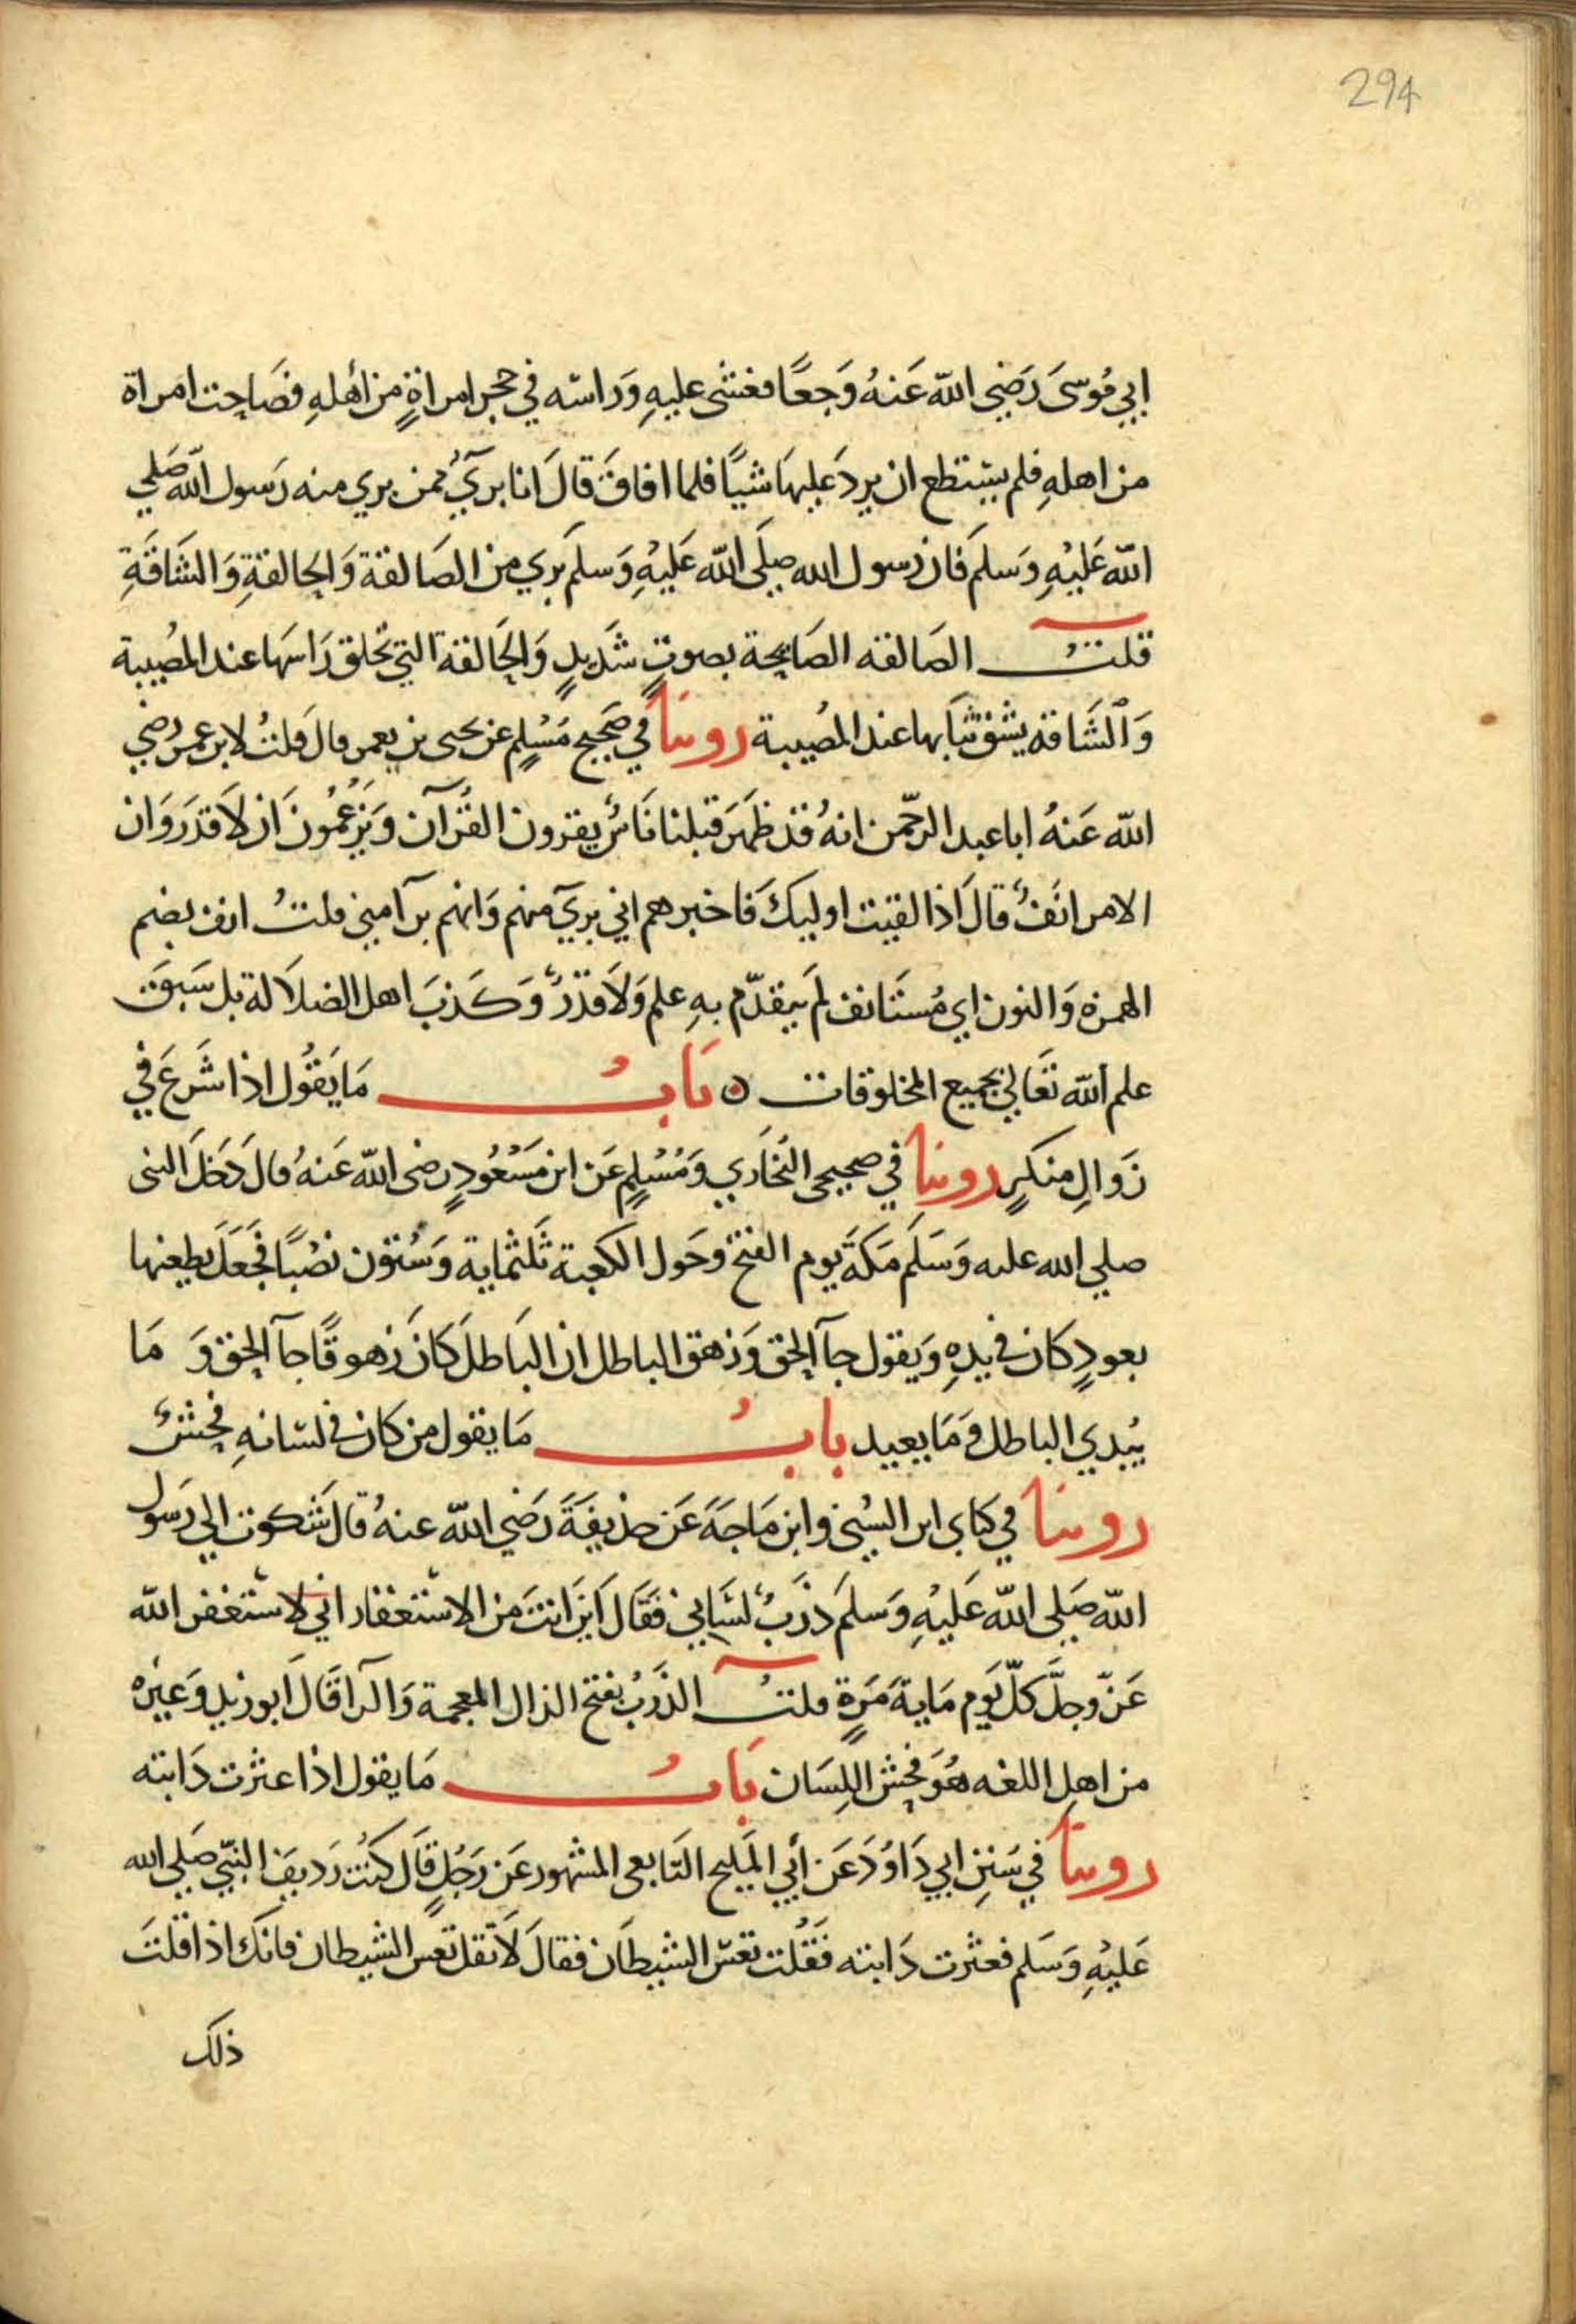 294
ابي مُوسَى رَضِي الله عَنهُ وَجعًا فغشى عليهِ وَراسه في حجر امراةٍ من أهلهِ فصَاحت امراة
من اهلهِ فلم يستطع ان يردَ عليهَا شيًا فلما افاقَ قالَ انا بريٓءُ ممن بري منه رَسول الله صَلى
الله عَليْهِ وَسلمَ فان رسول الله صلَى الله عَليْهِ وَسلمَ بَري من الصَالقة وَالحالقةِ وَالشَاقةِ
قلتُ الصَالقه الصَايحة بصوتٍ شَديدٍ وَالحَالقة التي تحلق رَاسهَا عند المصُيبة
وَالشَاقة يشقّ ثيَابها عند المصُيبة روينا في صَحيح مُسْلِم عن يحيى بن يعمر قال قلتُ لابن عمر رضي
الله عَنهُ ابا عبد الرحّمن انهُ قد ظهَرَ قبلنا نَاسٌ يقرون القُرآن وَيَزعُمُون َان لاَ قدَر وَان
الامر انَفٌ قالَ اذا لقيت اوليكَ فاخبرهم اني بريٓ منهم وَانهم برآ مني قلتُ انف بضم
الهمزه وَالنون اي مُستَانف لَم يتقدّم بهِ علم وَلاَ قدَرٌ وَكذبَ اهل الضلاَلة بل سَبقَ
علم الله تعَالي بجميع المخلوقات ه بَابُ مَا يَقُول اذا شَرعَ في
زوالِ منكرٍ روينا في صحيحي البُخَاري وَمُسْلِم عَن ابن مَسْعُودٍ رضى الله عَنهُ قال دَخَلَ النبى
صلي الله عليه وَسَلَم مَكةَ يوم الفتح وحَول الكعبة ثَلثماية وَسُتون نصُبًا فجَعَلَ يطعنها
بعودٍ كان في يدِهِ وَيقول جآ الحق وَزهق الباطل ان البَاطلَ كانَ زهوقًا جآ الحق وَ مَا
يُبدي الباطل وَمَا يعيد بابُ مَا يقول من كان في لسَانهِ فحشٌ
روينا في كتابي ابن السُني وابن مَاجَهَ عَن حذيفَةَ رَضي الله عنهُ قالَ شَكوت الي رَسول
الله صَلى الله عَليْهِ وَسلمَ ذرَبُ لسَاني فقَالَ ايَن انتَ من الاستغفار اني لاستغفر الله
عَزّ وجلَّ كلّ يَوم مَاية مَرةٍ قلتُ الذرَبُ بفتح الذال المعجمة وَالرا قَالَ ابو زيد وَغيره
من اهل اللغه هُوَ فحش اللِسَان بَابُ مَا يقول اذا عثرت دَابته
روينا في سُننِ ابي دَاوُدَ عَن أبي المَليح التَابعي المشهور عَن رَجُلٍ قَال كنتُ رَديفَ النبّي صَلي الله
عَليْهِ وَسَلم فعثرت دَابته فَقُلت تعسَ الشيطَان فقالَ لاَ تقل تعس الشيطان فانكَ اذا قلتَ
ذلك